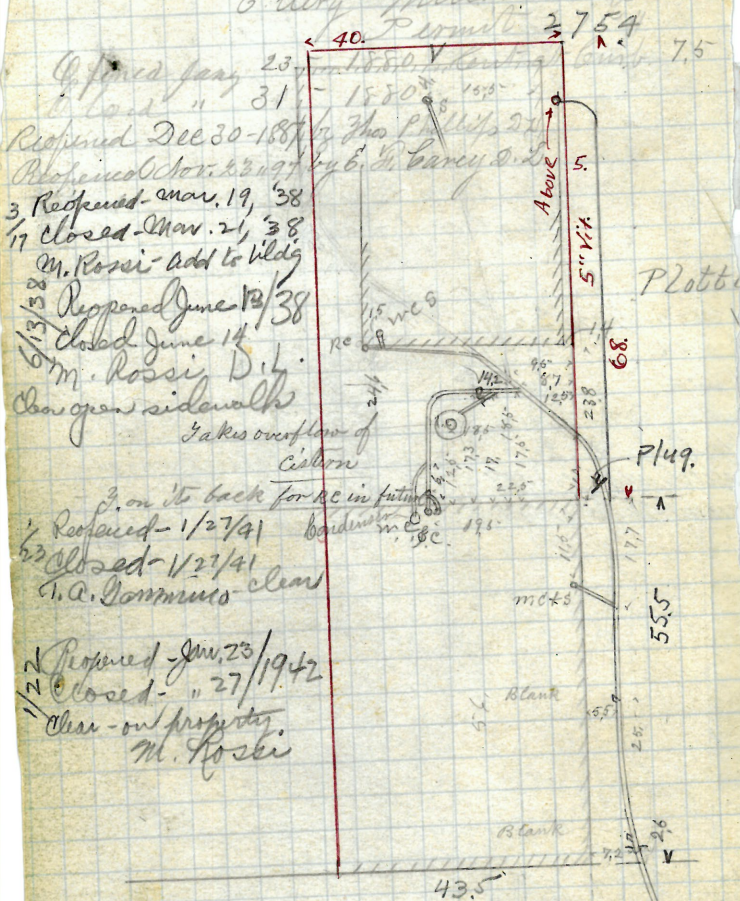 Permit 2754
40.
7.5
Opened Jany 23 1880
Closed " 31 - 1880
Reopened Dec 30-1887 by Thos Phillips D.L.
Reopened Nov. 23 by E. F. Carey D.L.
3/17 Reopened - Mar. 19, '38
Closed - Mar. 21, '38
M. Rossi - add to bldg
6/13/38 Reopened June 13/38
Closed June 14
M. Rossi D.L.
Clear open sidewalk
Takes overflow of
Cistern
Y on its back for RC in future
1/23 Reopened - 1/27/41
Closed - 1/27/41
Clear
1/22 Reopened - Jan. 23/1942
Closed - " 27/1942
Clear - on property
M. Rossi
15.5
S
Above
5.
5" Vit.
68.
1.5
MCS
RC
24.1
14.2
9.5
8.7
12.5
23.8
14
18.5
17.3
17.
17.5
22.5
19.5
Plug.
17.7
55.5
MC+S
Blank
5.5
25.
Blank
7.2
2.6
43.5